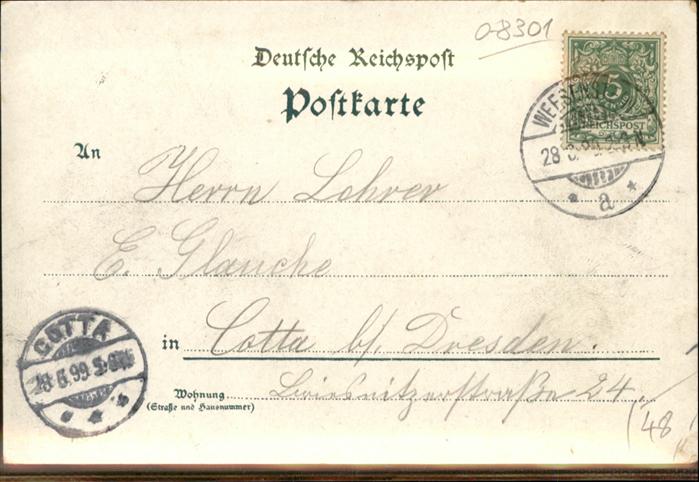 08301
Deutsche Reichspost
Postkarte
5
REICHSPOST
WEESENST
28
a
An
Herrn Lehrer
E. Glauche
in Cotta b/ Dresden.
Wohnung
(Straße und Hausnummer)
24
COTTA
99
48